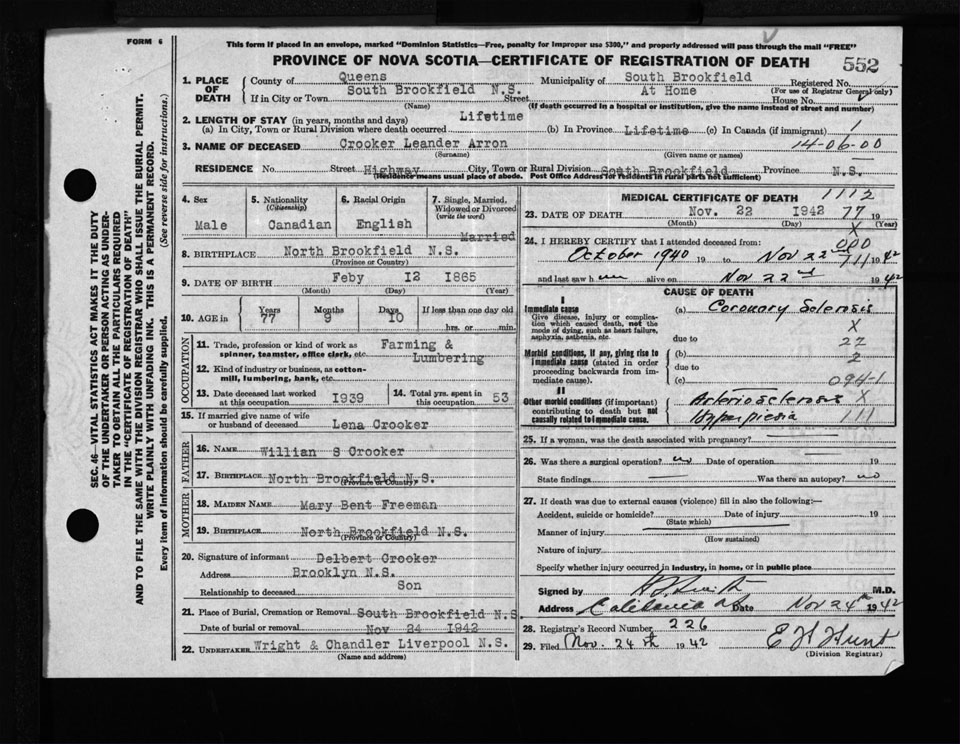 FORM 6
This form if placed in an envelope, marked "Dominion Statistics—Free, penalty for improper use $300," and properly addressed will pass through the mail "FREE"
PROVINCE OF NOVA SCOTIA—CERTIFICATE OF REGISTRATION OF DEATH
552
SEC. 46—VITAL STATISTICS ACT MAKES IT THE DUTY
OF THE UNDERTAKER OR PERSON ACTING AS UNDER-
TAKER TO OBTAIN ALL THE PARTICULARS REQUIRED
IN THE "CERTIFICATE OF REGISTRATION OF DEATH"
AND TO FILE THE SAME WITH THE DIVISION REGISTRAR WHO SHALL ISSUE THE BURIAL PERMIT.
WRITE PLAINLY WITH UNFADING INK. THIS IS A PERMANENT RECORD.
Every item of information should be carefully supplied. (See reverse side for instructions.)
1. PLACE OF DEATH
County of Queens Municipality of South Brookfield Registered No.
(For use of Registrar General only)
If in City or Town South Brookfield N.S. Street At Home House No.
(Name) (If death occurred in a hospital or institution, give the name instead of street and number)
2. LENGTH OF STAY (in years, months and days) Lifetime
(a) In City, Town or Rural Division where death occurred (b) In Province Lifetime (c) In Canada (if immigrant) 1
3. NAME OF DECEASED Crooker Leander Arron 14-06-00
(Surname) (Given name or names)
RESIDENCE No. Street Highway City, Town or Rural Division South Brookfield Province N.S.
(Residence means usual place of abode. Post Office Address for residents in rural parts not sufficient)
4. Sex Male
5. Nationality (Citizenship) Canadian
6. Racial Origin English
7. Single, Married, Widowed or Divorced (write the word) Married
8. BIRTHPLACE North Brookfield N.S.
(Province or Country)
9. DATE OF BIRTH Feby 12 1865
(Month) (Day) (Year)
10. AGE in Years 77 Months 9 Days 10 If less than one day old hrs. or min.
OCCUPATION
11. Trade, profession or kind of work as spinner, teamster, office clerk, etc. Farming & Lumbering
12. Kind of industry or business, as cotton-mill, lumbering, bank, etc.
13. Date deceased last worked at this occupation 1939
14. Total yrs. spent in this occupation 53
15. If married give name of wife or husband of deceased Lena Crooker
FATHER
16. NAME Willian S Crooker
17. BIRTHPLACE North Brookfield N.S.
(Province or Country)
MOTHER
18. MAIDEN NAME Mary Bent Freeman
19. BIRTHPLACE North Brookfield N.S.
(Province or Country)
20. Signature of informant Delbert Crooker
Address Brooklyn N.S.
Relationship to deceased Son
21. Place of Burial, Cremation or Removal South Brookfield N.S.
Date of burial or removal Nov 24 1942
22. UNDERTAKER Wright & Chandler Liverpool N.S.
(Name and address)
MEDICAL CERTIFICATE OF DEATH 1112
23. DATE OF DEATH Nov. 22 1942 77 19
(Month) (Day) (Year)
X
24. I HEREBY CERTIFY that I attended deceased from: 000
October 1940 19 to Nov 22nd 1942
111
and last saw h alive on Nov 22nd 1942
CAUSE OF DEATH
I
Immediate cause
Give disease, injury or complication which caused death, not the mode of dying, such as heart failure, asphyxia, asthenia, etc.
(a) Coronary Sclerosis
X
due to 22
Morbid conditions, if any, giving rise to immediate cause (stated in order proceeding backwards from immediate cause).
(b) 2
due to
(c) 094-1
II
Other morbid conditions (if important) contributing to death but not causally related to immediate cause.
Arteriosclerosis X
Hyperpiesia 111
25. If a woman, was the death associated with pregnancy?
26. Was there a surgical operation? no Date of operation 19
State findings Was there an autopsy? no
27. If death was due to external causes (violence) fill in also the following:—
Accident, suicide or homicide? Date of injury 19
(State which)
Manner of injury
(How sustained)
Nature of injury
Specify whether injury occurred in industry, in home, or in public place
Signed by M.D.
Address Caledonia Date Nov 24th 1942
28. Registrar's Record Number 226
29. Filed Nov. 24th 1942 Hunt
(Division Registrar)